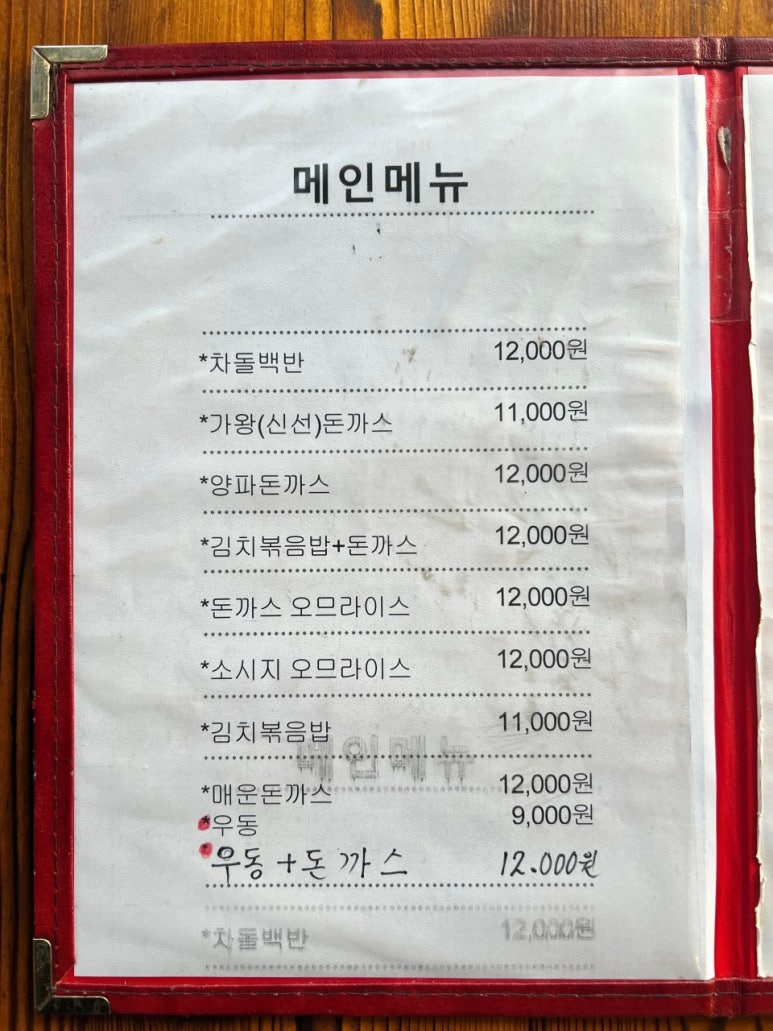 메인메뉴
*차돌백반 12,000원
*가왕(신선)돈까스 11,000원
*양파돈까스 12,000원
*김치볶음밥+돈까스 12,000원
*돈까스 오므라이스 12,000원
*소시지 오므라이스 12,000원
*김치볶음밥 11,000원
메인메뉴
*매운돈까스 12,000원
*우동 9,000원
*우동+돈까스 12.000원
*차돌백반 12,000원